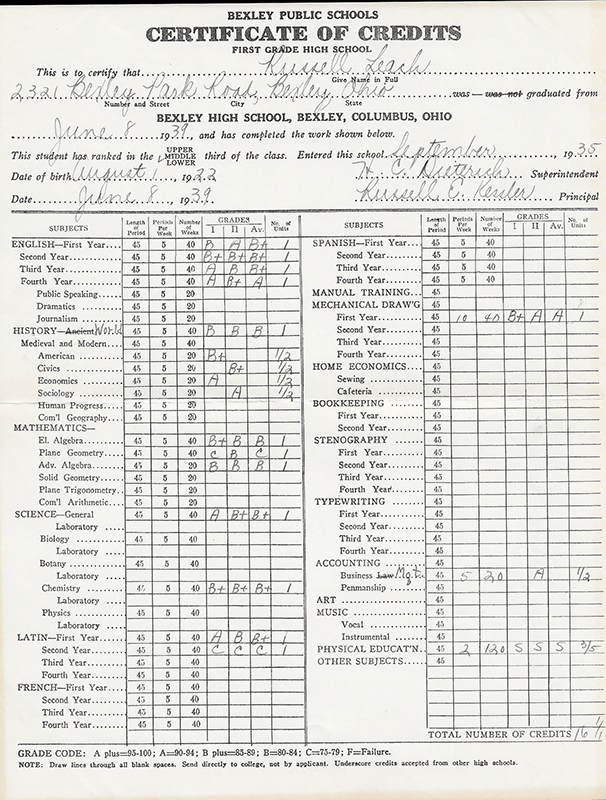 BEXLEY PUBLIC SCHOOLS
CERTIFICATE OF CREDITS
FIRST GRADE HIGH SCHOOL
This is to certify that Russell Leach
Give Name in Full
2321 Bexley Park Road, Bexley, Ohio was — was not graduated from
Number and Street City State
BEXLEY HIGH SCHOOL, BEXLEY, COLUMBUS, OHIO
June 8 1939, and has completed the work shown below.
This student has ranked in the UPPER MIDDLE LOWER third of the class. Entered this school September, 1935
Date of birth August 1 1922 H. C. Dieterich Superintendent
Date June 8 1939 Russell E. Kessler Principal
SUBJECTS Length of Period Periods Per Week Number of Weeks GRADES I II Av. No. of Units
ENGLISH—First Year 45 5 40 B A B+ 1
Second Year 45 5 40 B+ B+ B+ 1
Third Year 45 5 40 A B B+ 1
Fourth Year 45 5 40 A B+ A 1
Public Speaking 45 5 20
Dramatics 45 5 20
Journalism 45 5 20
HISTORY—Ancient World 45 5 40 B B B 1
Medieval and Modern 45 5 40
American 45 5 20 B+ 1/2
Civics 45 5 20 B+ 1/2
Economics 45 5 20 A 1/2
Sociology 45 5 20 A 1/2
Human Progress 45 5 20
Com'l Geography 45 5 20
MATHEMATICS—
El. Algebra 45 5 40 B+ B B 1
Plane Geometry 45 5 40 C B C 1
Adv. Algebra 45 5 20 B B B 1
Solid Geometry 45 5 20
Plane Trigonometry 45 5 20
Com'l Arithmetic 45 5 20
SCIENCE—General 45 5 40 A B+ B+ 1
Laboratory
Biology 45 5 40
Laboratory
Botany 45 5 40
Laboratory
Chemistry 45 5 40 B+ B+ B+ 1
Laboratory
Physics 45 5 40
Laboratory
LATIN—First Year 45 5 40 A B B+ 1
Second Year 45 5 40 C C C 1
Third Year 45 5 40
Fourth Year 45 5 40
FRENCH—First Year 45 5 40
Second Year 45 5 40
Third Year 45 5 40
Fourth Year 45 5 40
SUBJECTS Length of Period Periods Per Week Number of Weeks GRADES I II Av. No. of Units
SPANISH—First Year 45 5 40
Second Year 45 5 40
Third Year 45 5 40
Fourth Year 45 5 40
MANUAL TRAINING 45
MECHANICAL DRAW'G 45
First Year 45 10 40 B+ A A 1
Second Year 45
Third Year 45
Fourth Year 45
HOME ECONOMICS 45
Sewing 45
Cafeteria 45
BOOKKEEPING 45
First Year 45
Second Year 45
STENOGRAPHY 45
First Year 45
Second Year 45
Third Year 45
Fourth Year 45
TYPEWRITING 45
First Year 45
Second Year 45
Third Year 45
Fourth Year 45
ACCOUNTING 45
Business Law Mgt. 45 5 20 A 1/2
Penmanship 45
ART 45
MUSIC 45
Vocal 45
Instrumental 45
PHYSICAL EDUCAT'N 45 2 120 S S S 3/5
OTHER SUBJECTS 45
TOTAL NUMBER OF CREDITS 16
GRADE CODE: A plus=95-100; A=90-94; B plus=85-89; B=80-84; C=75-79; F=Failure.
NOTE: Draw lines through all blank spaces. Send directly to college, not by applicant. Underscore credits accepted from other high schools.